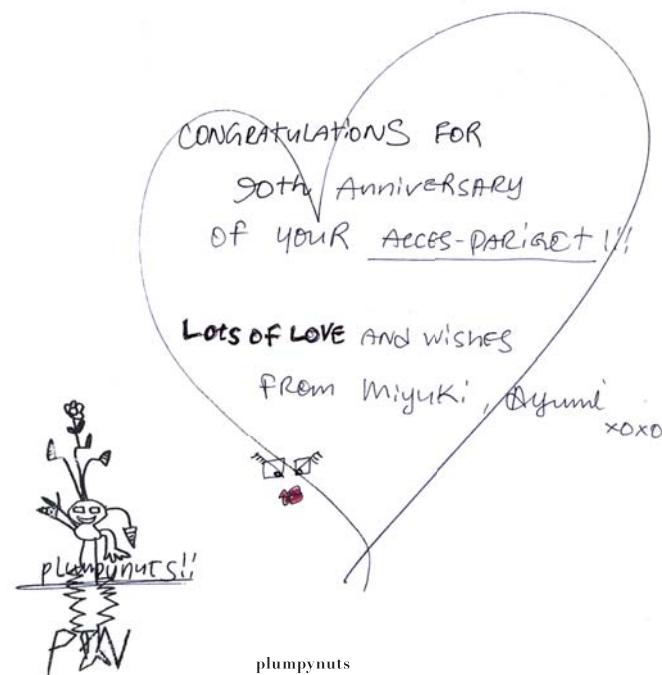 CONGRATULATIONS FOR
90th ANNIVERSARY
OF YOUR ACCES-PARIGET!!!
LOTS OF LOVE AND WISHES
FROM Miyuki, Ayumi
xoxo
plumpynuts!!
plumpynuts